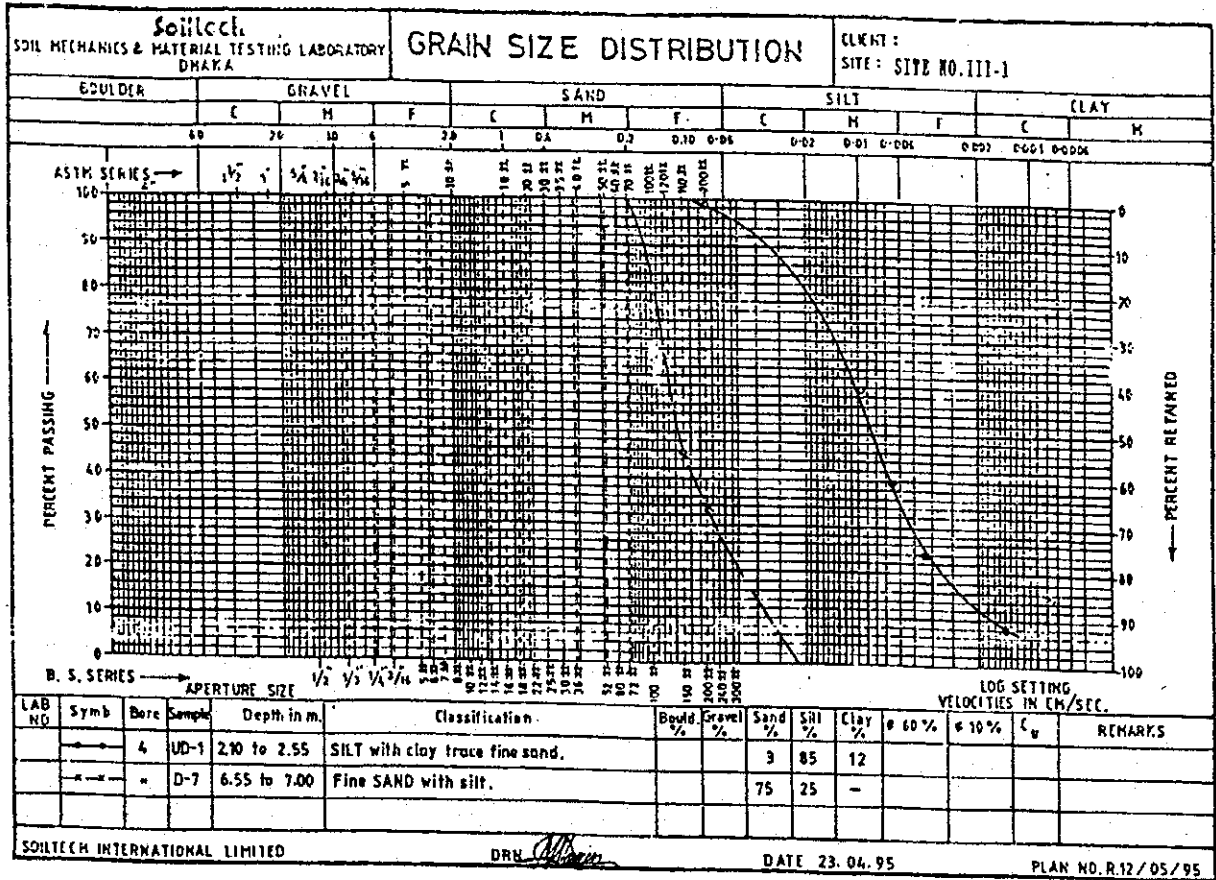 Soiltech
SOIL MECHANICS & MATERIAL TESTING LABORATORY
DHAKA
GRAIN SIZE DISTRIBUTION
CLIENT :
SITE : SITE NO.III-1
BOULDER GRAVEL SAND SILT CLAY
C M F C M F C M F C M
60 20 10 6 2.0 1 0.6 0.2 0.10 0.06 0.02 0.01 0.006 0.002 0.001 0.0006
ASTM SERIES
100 90 80 70 60 50 40 30 20 10 0
PERCENT PASSING
0 10 20 30 40 50 60 70 80 90 100
PERCENT RETAINED
B. S. SERIES
APERTURE SIZE
LOG SETTING
VELOCITIES IN CM/SEC.
LAB NO Symb Bore Sample Depth in m. Classification Bould. % Gravel % Sand % Silt % Clay % ø 60 % ø 10 % Cu REMARKS
4 UD-1 2.10 to 2.55 SILT with clay trace fine sand. 3 85 12
" D-7 6.55 to 7.00 Fine SAND with silt. 75 25 -
SOILTECH INTERNATIONAL LIMITED DRN DATE 23.04.95 PLAN NO.R.12/05/95